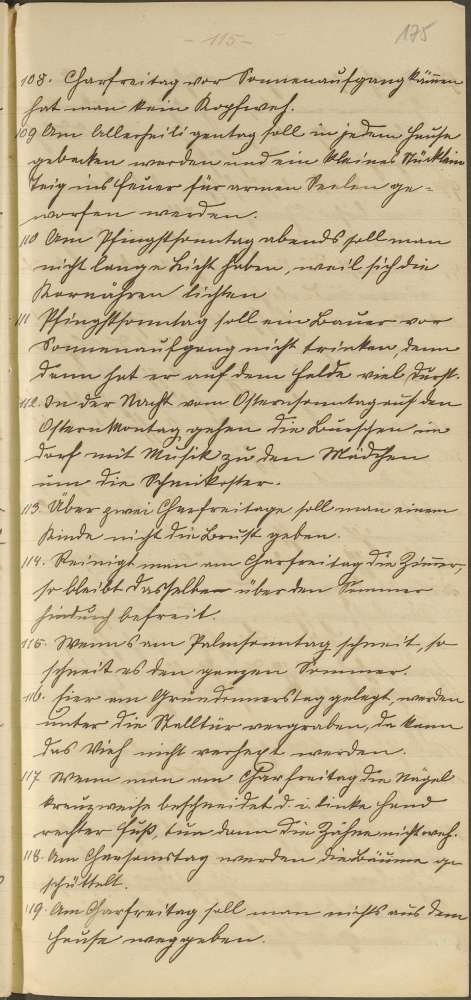 - 115 -
175
108. Charfreitag vor Sonnenaufgang kämmen
hat man kein Kopfweh.
109 Am Allerheiligentag soll in jedem Hause
gebacken werden und ein kleines Stücklein
Teig ins Feuer für armen Seelen ge-
worfen werden.
110 Am Pfingstsonntag abends soll man
nicht lange Licht haben, weil sich die
Kornähren lichten
111 Pfingstsonntag soll ein Bauer vor
Sonnenaufgang nicht trinken, denn
dann hat er auf dem Felde viel Durst.
112. In der Nacht vom Osternsonntag auf den
Ostern Montag gehen die Burschen im
Dorf mit Musik zu den Mädchen
um die
113. Über zwei Charfreitage soll man einem
Kinde nicht die Brust geben.
114. Reinigt man am Charfreitag die Zimmer,
so bleibt dasselbe über den Sommer
hindurch befreit.
115. Wenns am Palmsonntag schneit, so
schneit es den ganzen Sommer.
116. Eier am Gründonnerstag gelegt, werden
unter die Stalltür vergraben, da kann
das Vieh nicht verhext werden.
117 Wenn man am Charfreitag die Nägel
kreuzweise beschneidet d. i. linke Hand
rechter Fuß tun dann die Zähne nicht weh.
118. Am Charsamstag werden die Bäume ge
schüttelt.
119. Am Charfreitag soll man nichts aus dem
Hause weggeben.